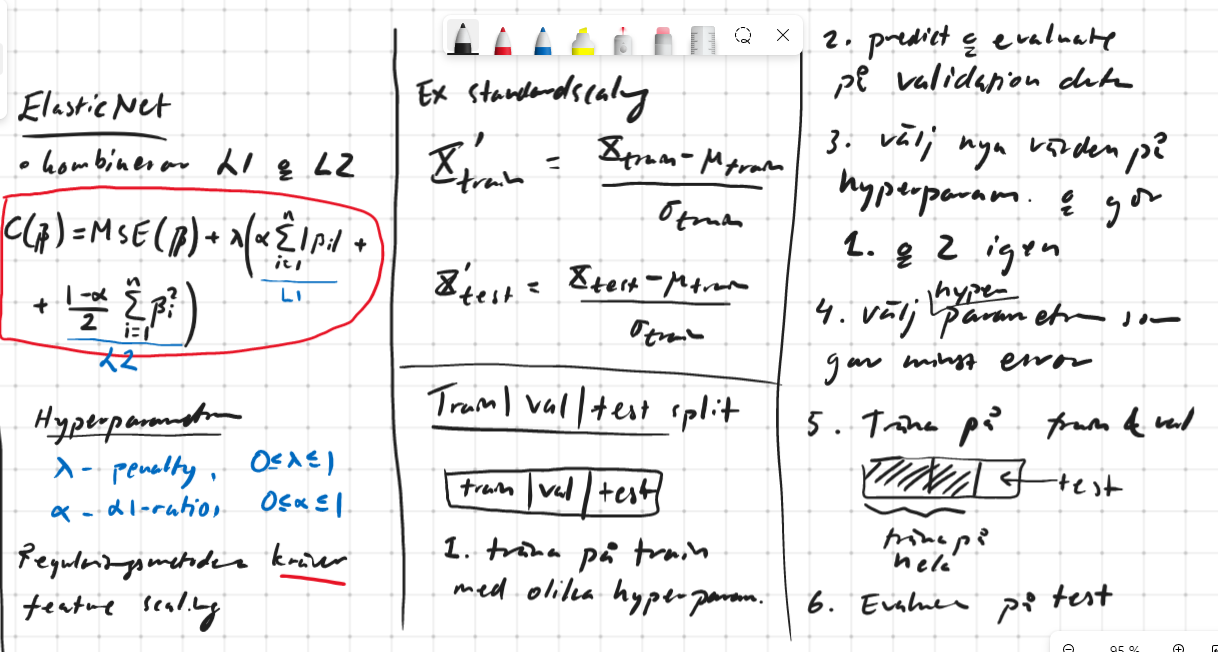 ElasticNet
• kombinerar L1 & L2
C(β) = MSE(β) + λ(α Σ_{i=1}^{n} |βi| +
L1
+ (1-α)/2 Σ_{i=1}^{n} βi²)
L2
Hyperparametrar
λ - penalty, 0≤λ≤1
α - L1-ratio, 0≤α≤1
Regulariseringsmetoder kräver
feature scaling
Ex standardscaling
X'train = (Xtrain - μtrain) / σtrain
X'test = (Xtest - μtrain) / σtrain
Train|val|test split
train | val | test
1. träna på train
med olika hyperparam.
2. predict & evaluate
på validation data
3. välj nya värden på
hyperparam. & gör
1. & 2 igen
4. välj hyperparametrar som
gav minst error
5. Träna på train & val
test
träna på
hela
6. Evaluera på test
95 %